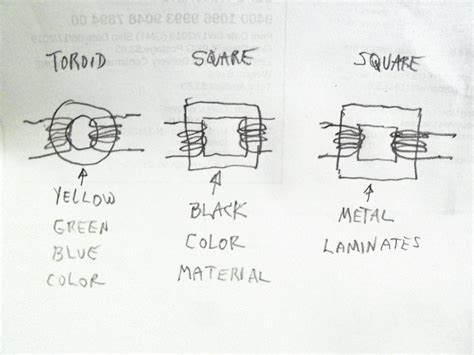 TOROID
SQUARE
SQUARE
YELLOW
GREEN
BLUE
COLOR
BLACK
COLOR
MATERIAL
METAL
LAMINATES